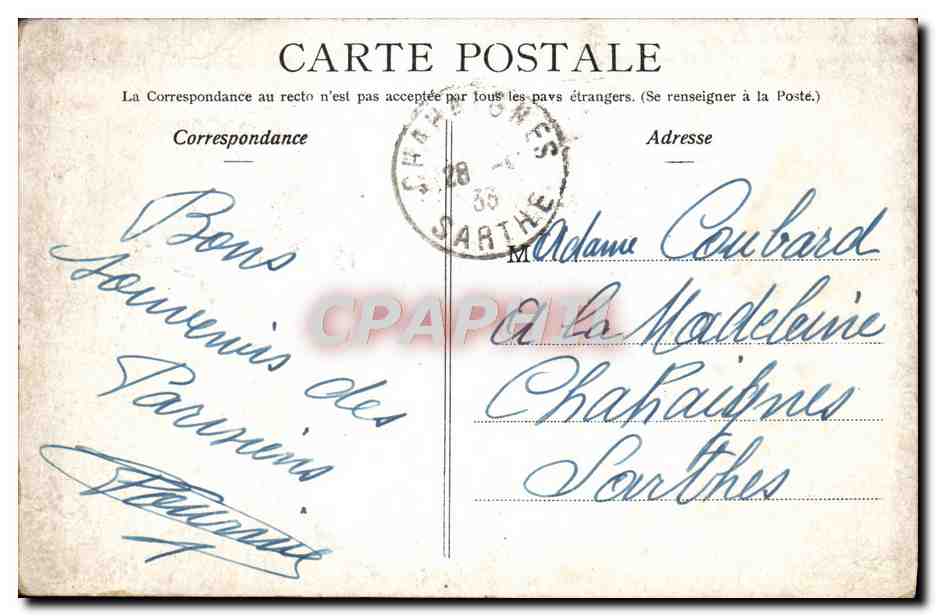 CARTE POSTALE
La Correspondance au recto n'est pas acceptée par tous les pays étrangers. (Se renseigner à la Poste.)
Correspondance
Bons
souvenirs des
Parisiens
A
SARTHE
28
33
Adresse
Madame Coubard
A la Madeleine
Chahaignes
Sarthes
CPAPHIL